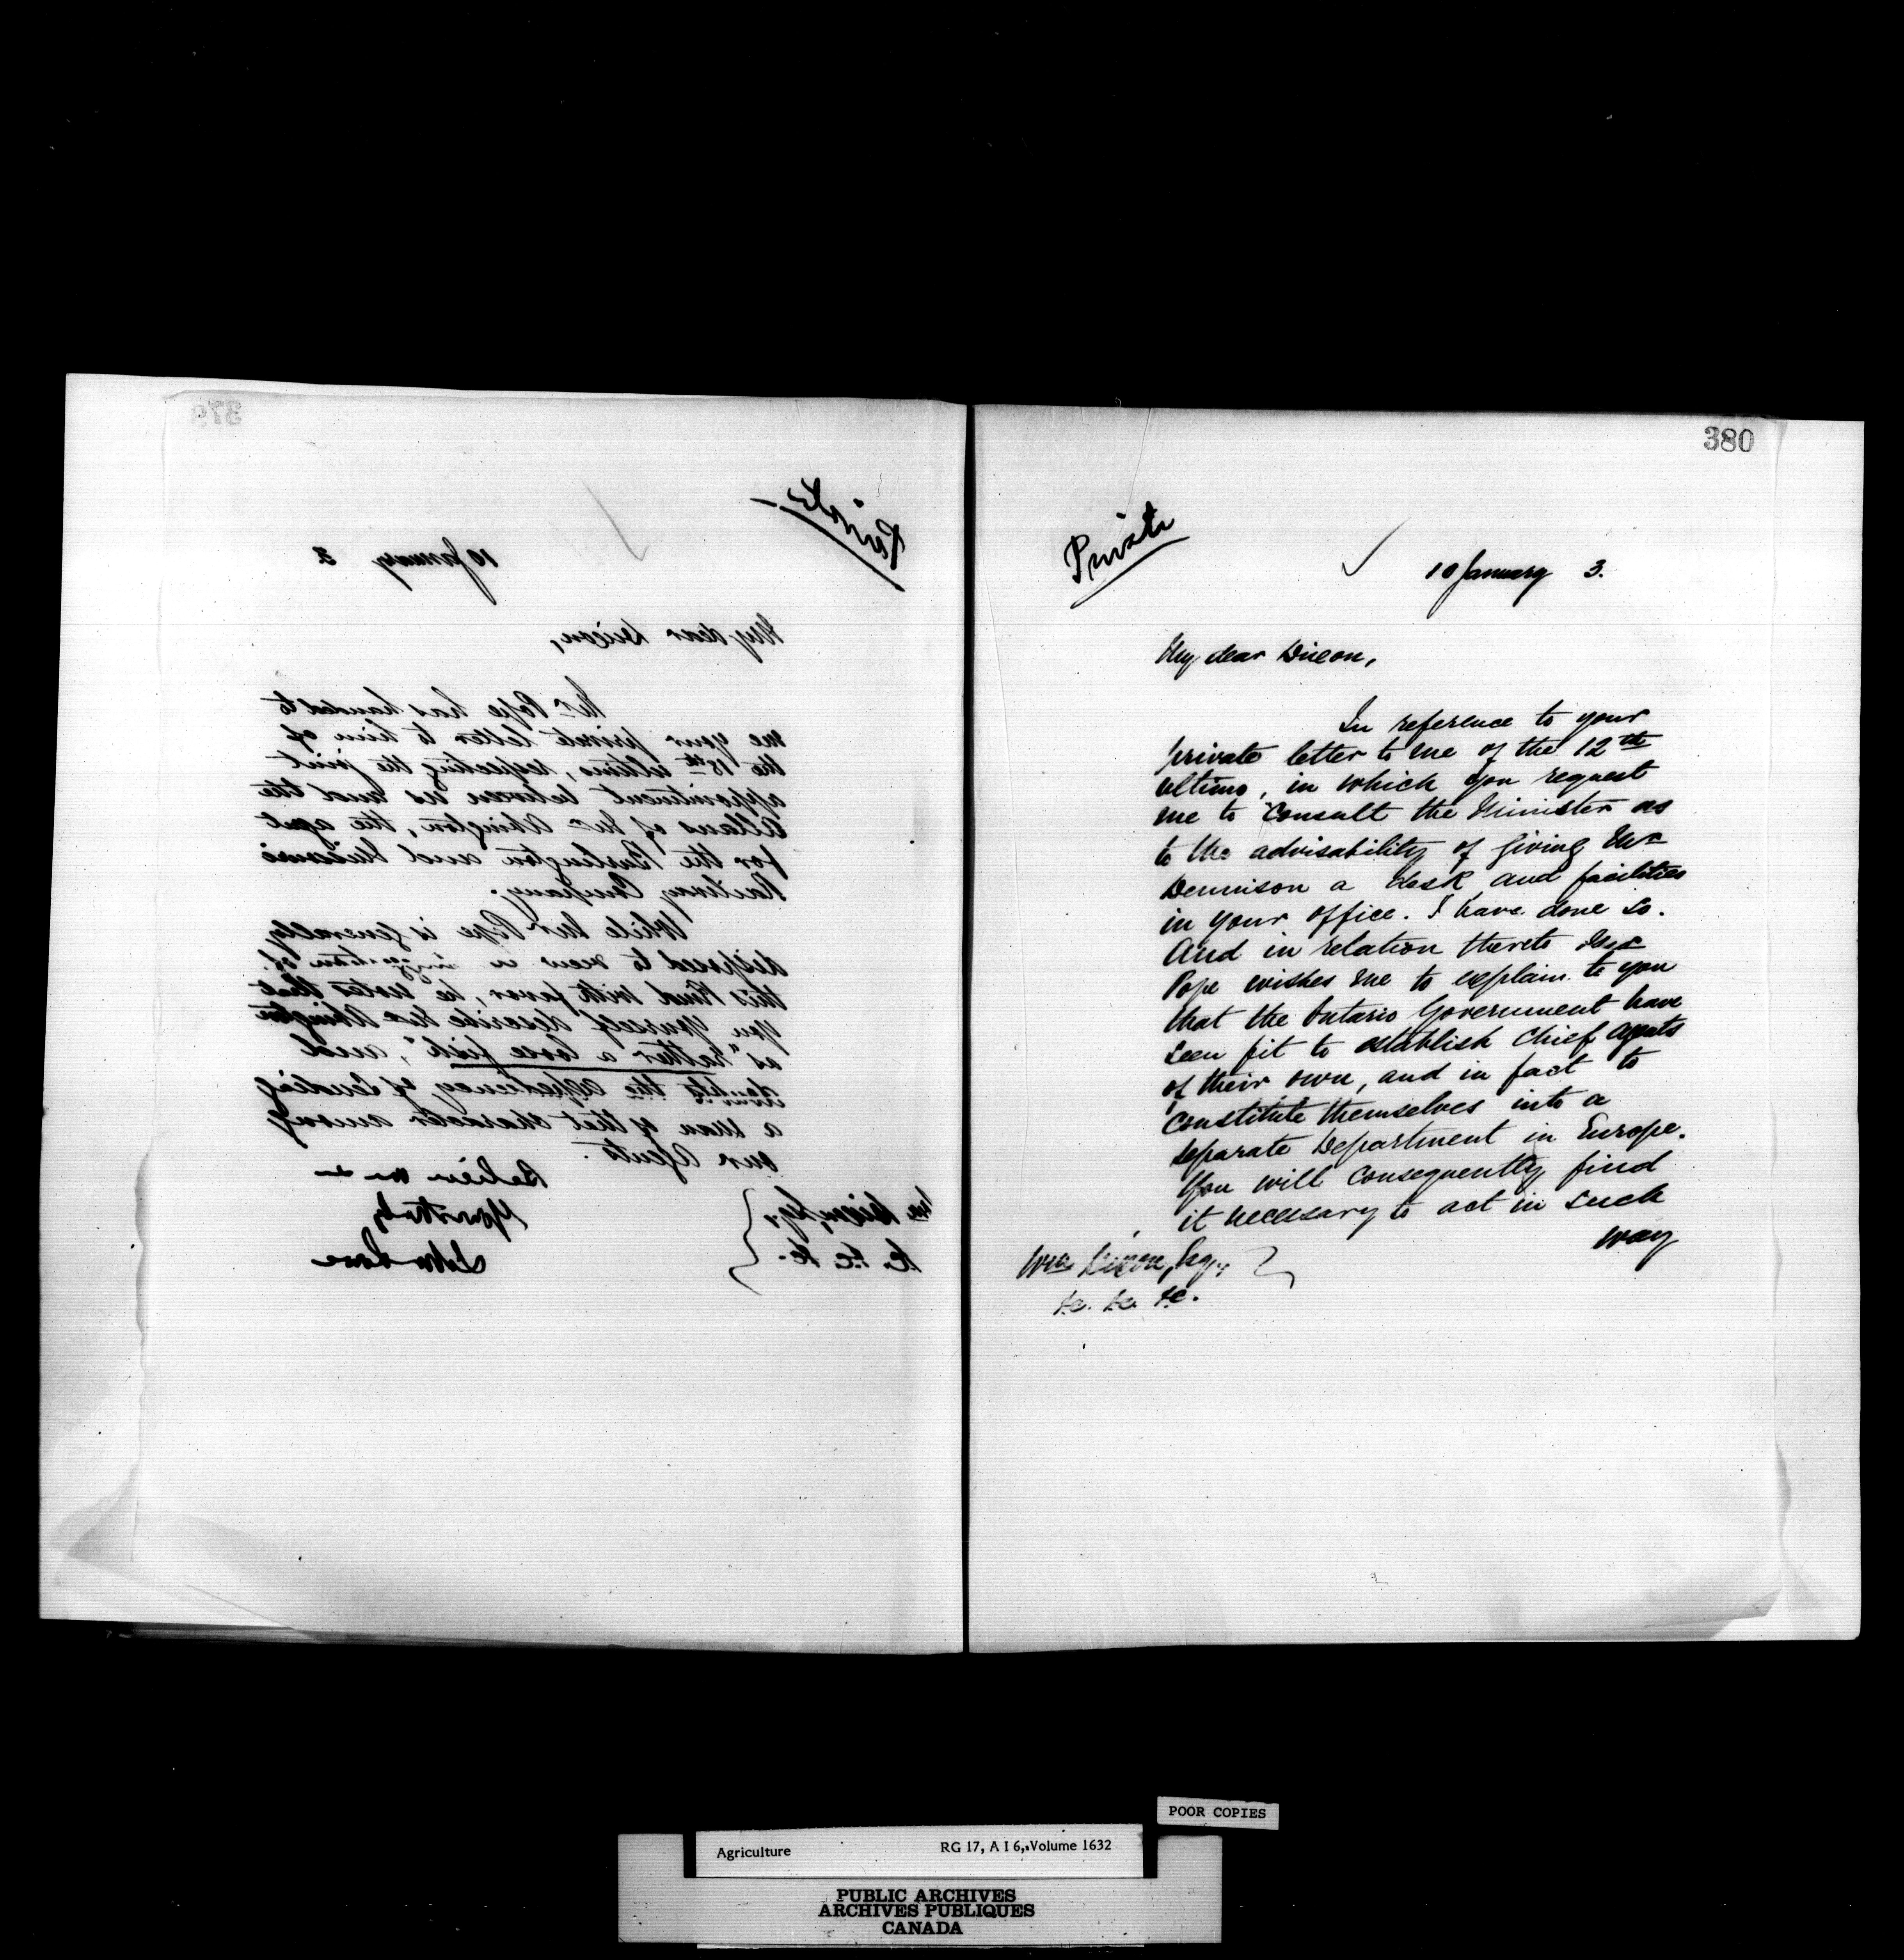 379
Private
10 January 3
My dear Dixon,
Mr Pope has handed to
me your private letter to him of
the 18th ultimo, respecting the joint
appointment between us and the
Allans of Mr Abington, the agent
for the Burlington and Missouri
Railway Company.
While Mr Pope is generally
disposed to view a suggestion of
this kind with favor, he notes that
you yourself describe Mr Abington
as "rather a loose fish", and
doubts the expediency of sending
a man of that character among
our Agents.
Believe me
Yours truly
John Lowe
Wm Dixon, Esq.,
&c. &c. &c.
380
Private
10 January 3.
My dear Dixon,
In reference to your
private letter to me of the 12th
ultimo, in which you request
me to consult the Minister as
to the advisability of giving Mr
Dennison a desk and facilities
in your office. I have done so.
And in relation thereto Mr
Pope wishes me to explain to you
that the Ontario Government have
seen fit to establish Chief Agents
of their own, and in fact to
constitute themselves into a
separate Department in Europe.
You will consequently find
it necessary to act in such
way
Wm Dixon, Esq.,
&c. &c. &c.
POOR COPIES
Agriculture RG 17, A I 6, Volume 1632
PUBLIC ARCHIVES
ARCHIVES PUBLIQUES
CANADA